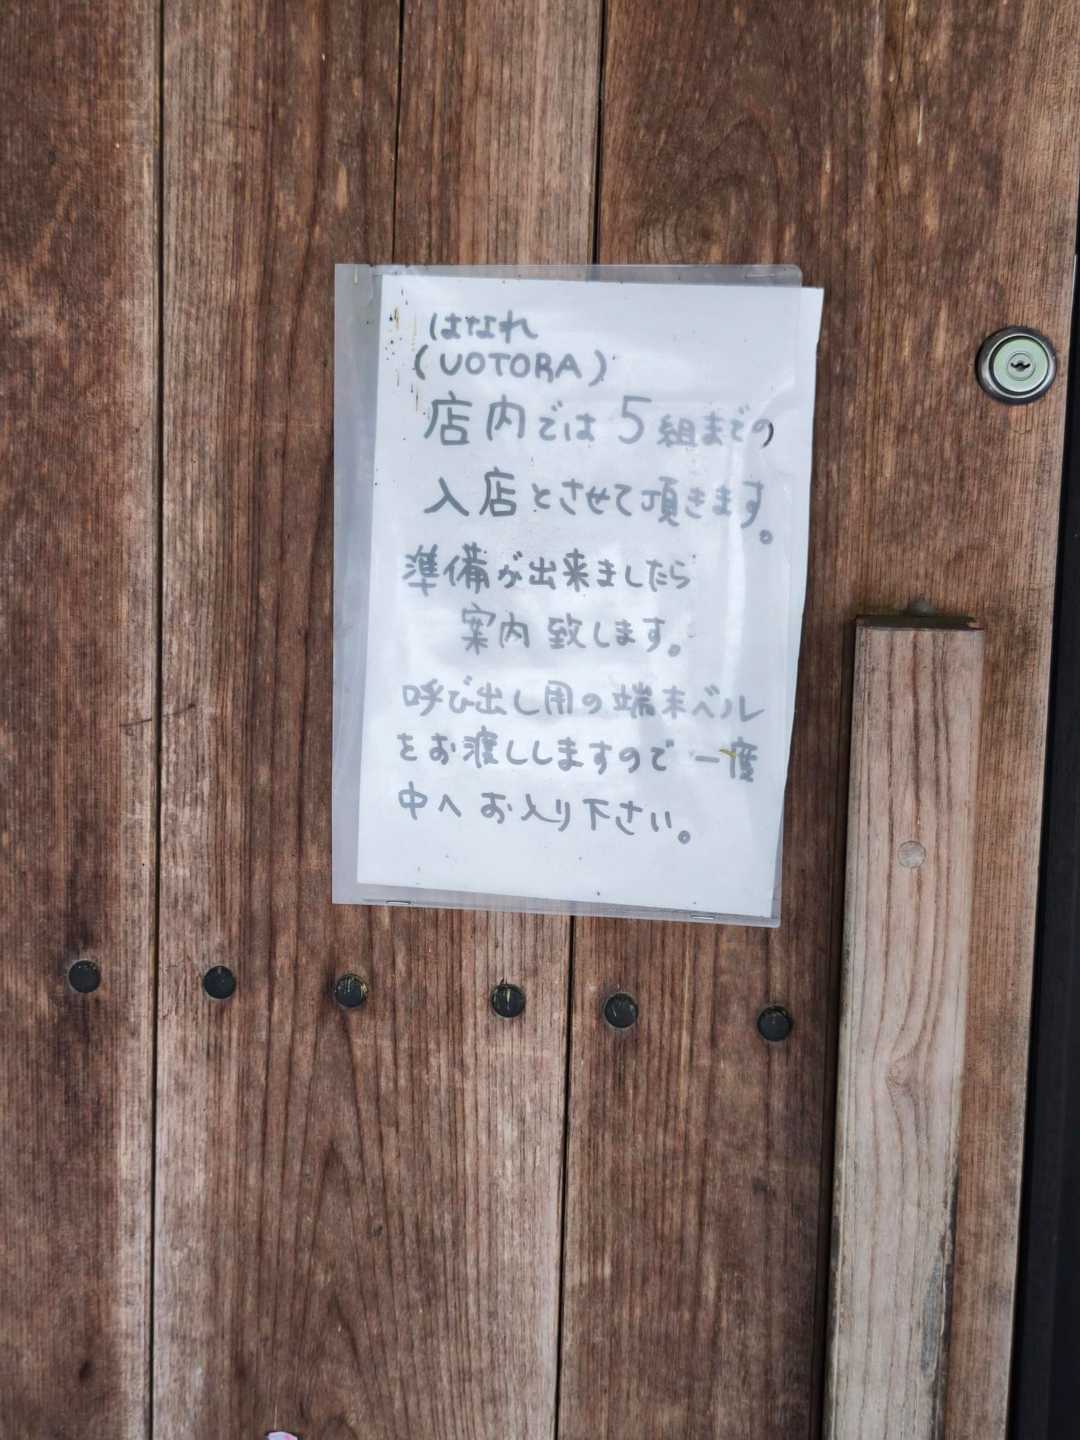 はなれ
(UOTORA)
店内では5組までの
入店とさせて頂きます。
準備が出来ましたら
案内致します。
呼び出し用の端末ベル
をお渡ししますので一度
中へお入り下さい。